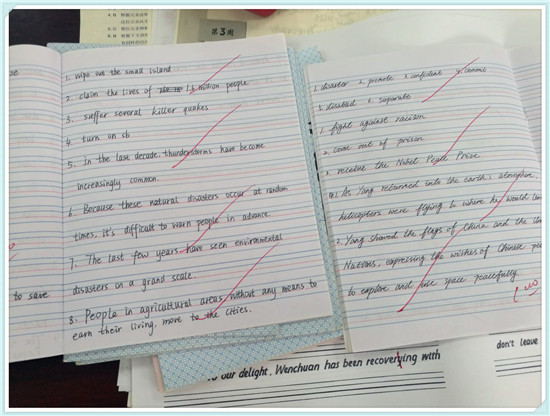 第3周
se
to save
1. wipe out the small island
2. claim the lives of 1.6 million people
3. suffer several killer quakes
4. turn on sb
5. In the last decade, thunderstorms have become
increasingly common.
6. Because these natural disasters occur at random
times, it's difficult to warn people in advance.
7. The last few years have seen environmental
disasters on a grand scale.
8. People in agricultural areas, without any means to
earn their living, move to the cities.
1. disaster 2. promote 3. confident 4. commit
5. disabled 6. separate
1. fight against racism
2. come out of prison
3. receive the Nobel Peace Prize
1. As Yang returned into the earth's atmosphere,
helicopters were flying to where he would
2. Yang showed the flags of China and the
Nations, expressing the wishes of Chinese
to explore and use space peacefully.
To our delight, Wenchuan has been recovering with
don't leave